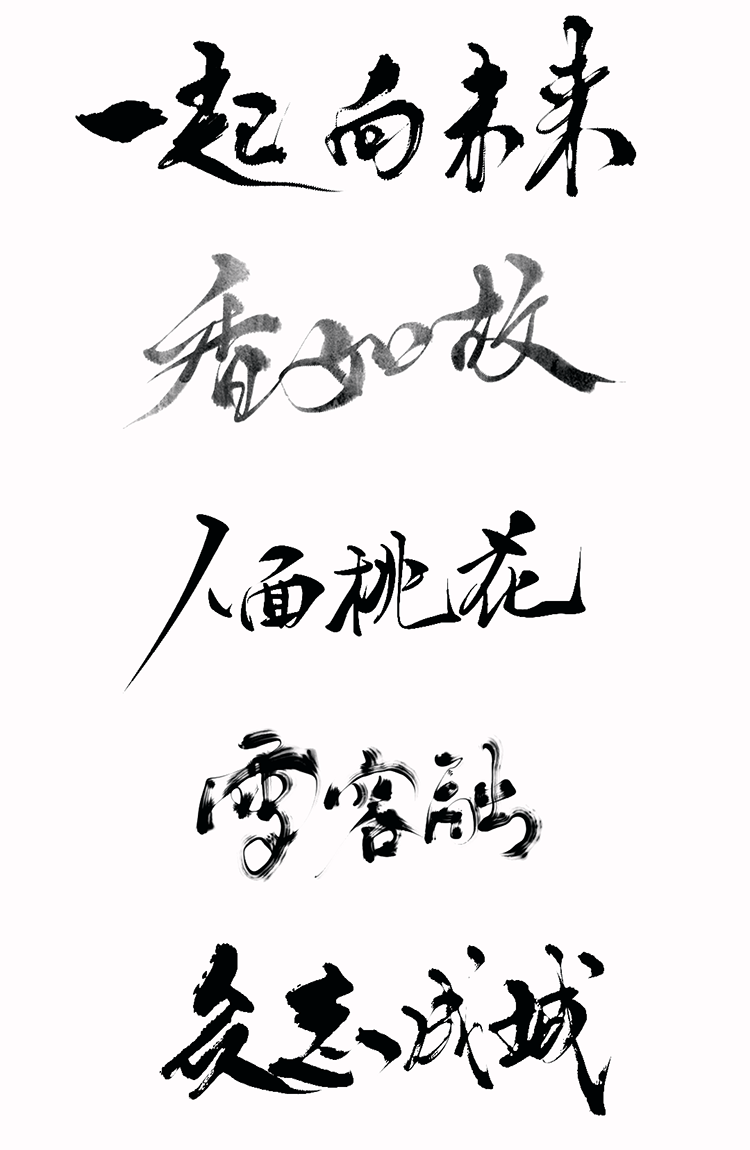 一起向未来
香如故
人面桃花
雪容融
众志成城